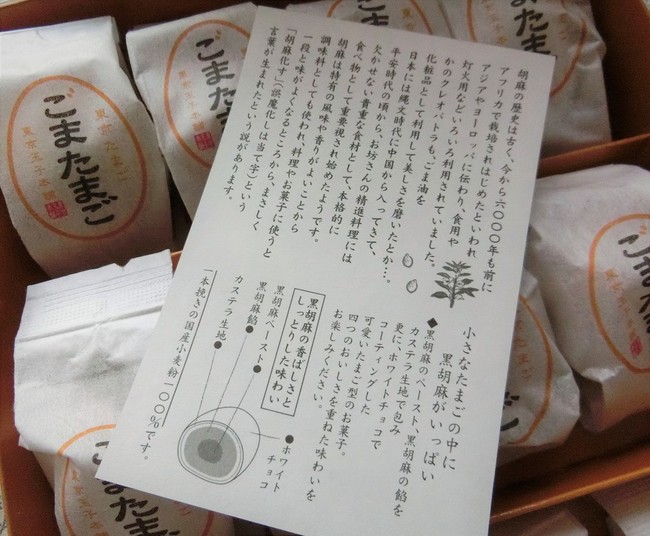 胡麻の歴史は古く、今から六〇〇〇年も前に
アフリカで栽培されはじめたといわれ
アジアやヨーロッパに伝わり、食用や
灯火用などいろいろ利用されていました。
かのクレオパトラも、ごま油を
化粧品として利用して美しさを磨いたとか…。
日本には縄文時代に中国から入ってきて、
平安時代の頃から、お坊さんの精進料理には
欠かせない貴重な食材として、本格的に
食べ物として重要視され始めたようです。
胡麻は特有の風味や香りがよいことから
調味料としても使われ、料理やお菓子に使うと
一段と味がよくなるところから、まさしく
「胡麻化す」(誤魔化しは当て字)という
言葉が生まれたという説があります。
小さなたまごの中に
黒胡麻がいっぱい
◆黒胡麻のペースト、黒胡麻の餡を
カステラ生地で包み
更に、ホワイトチョコで
コーティングした
可愛いたまご型のお菓子。
四つのおいしさを重ねた味わいを
お楽しみください。
黒胡麻の香ばしさと
しっとりした味わい
黒胡麻ペースト●
黒胡麻餡●
カステラ生地●
●ホワイト
チョコ
一本挽きの国産小麦粉一〇〇%です。
ごまたまご
東京たまご
東京玉子本舗
ごまたまご
東京たまご
東京玉子本舗
ごまた
東京
ごまたまご
東京玉子本舗